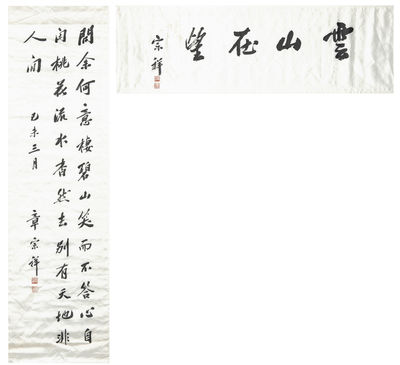 問余何意棲碧山笑而不答心自
閑桃花流水杳然去別有天地非
人間
己未三月 章宗祥
雲山在望
宗祥